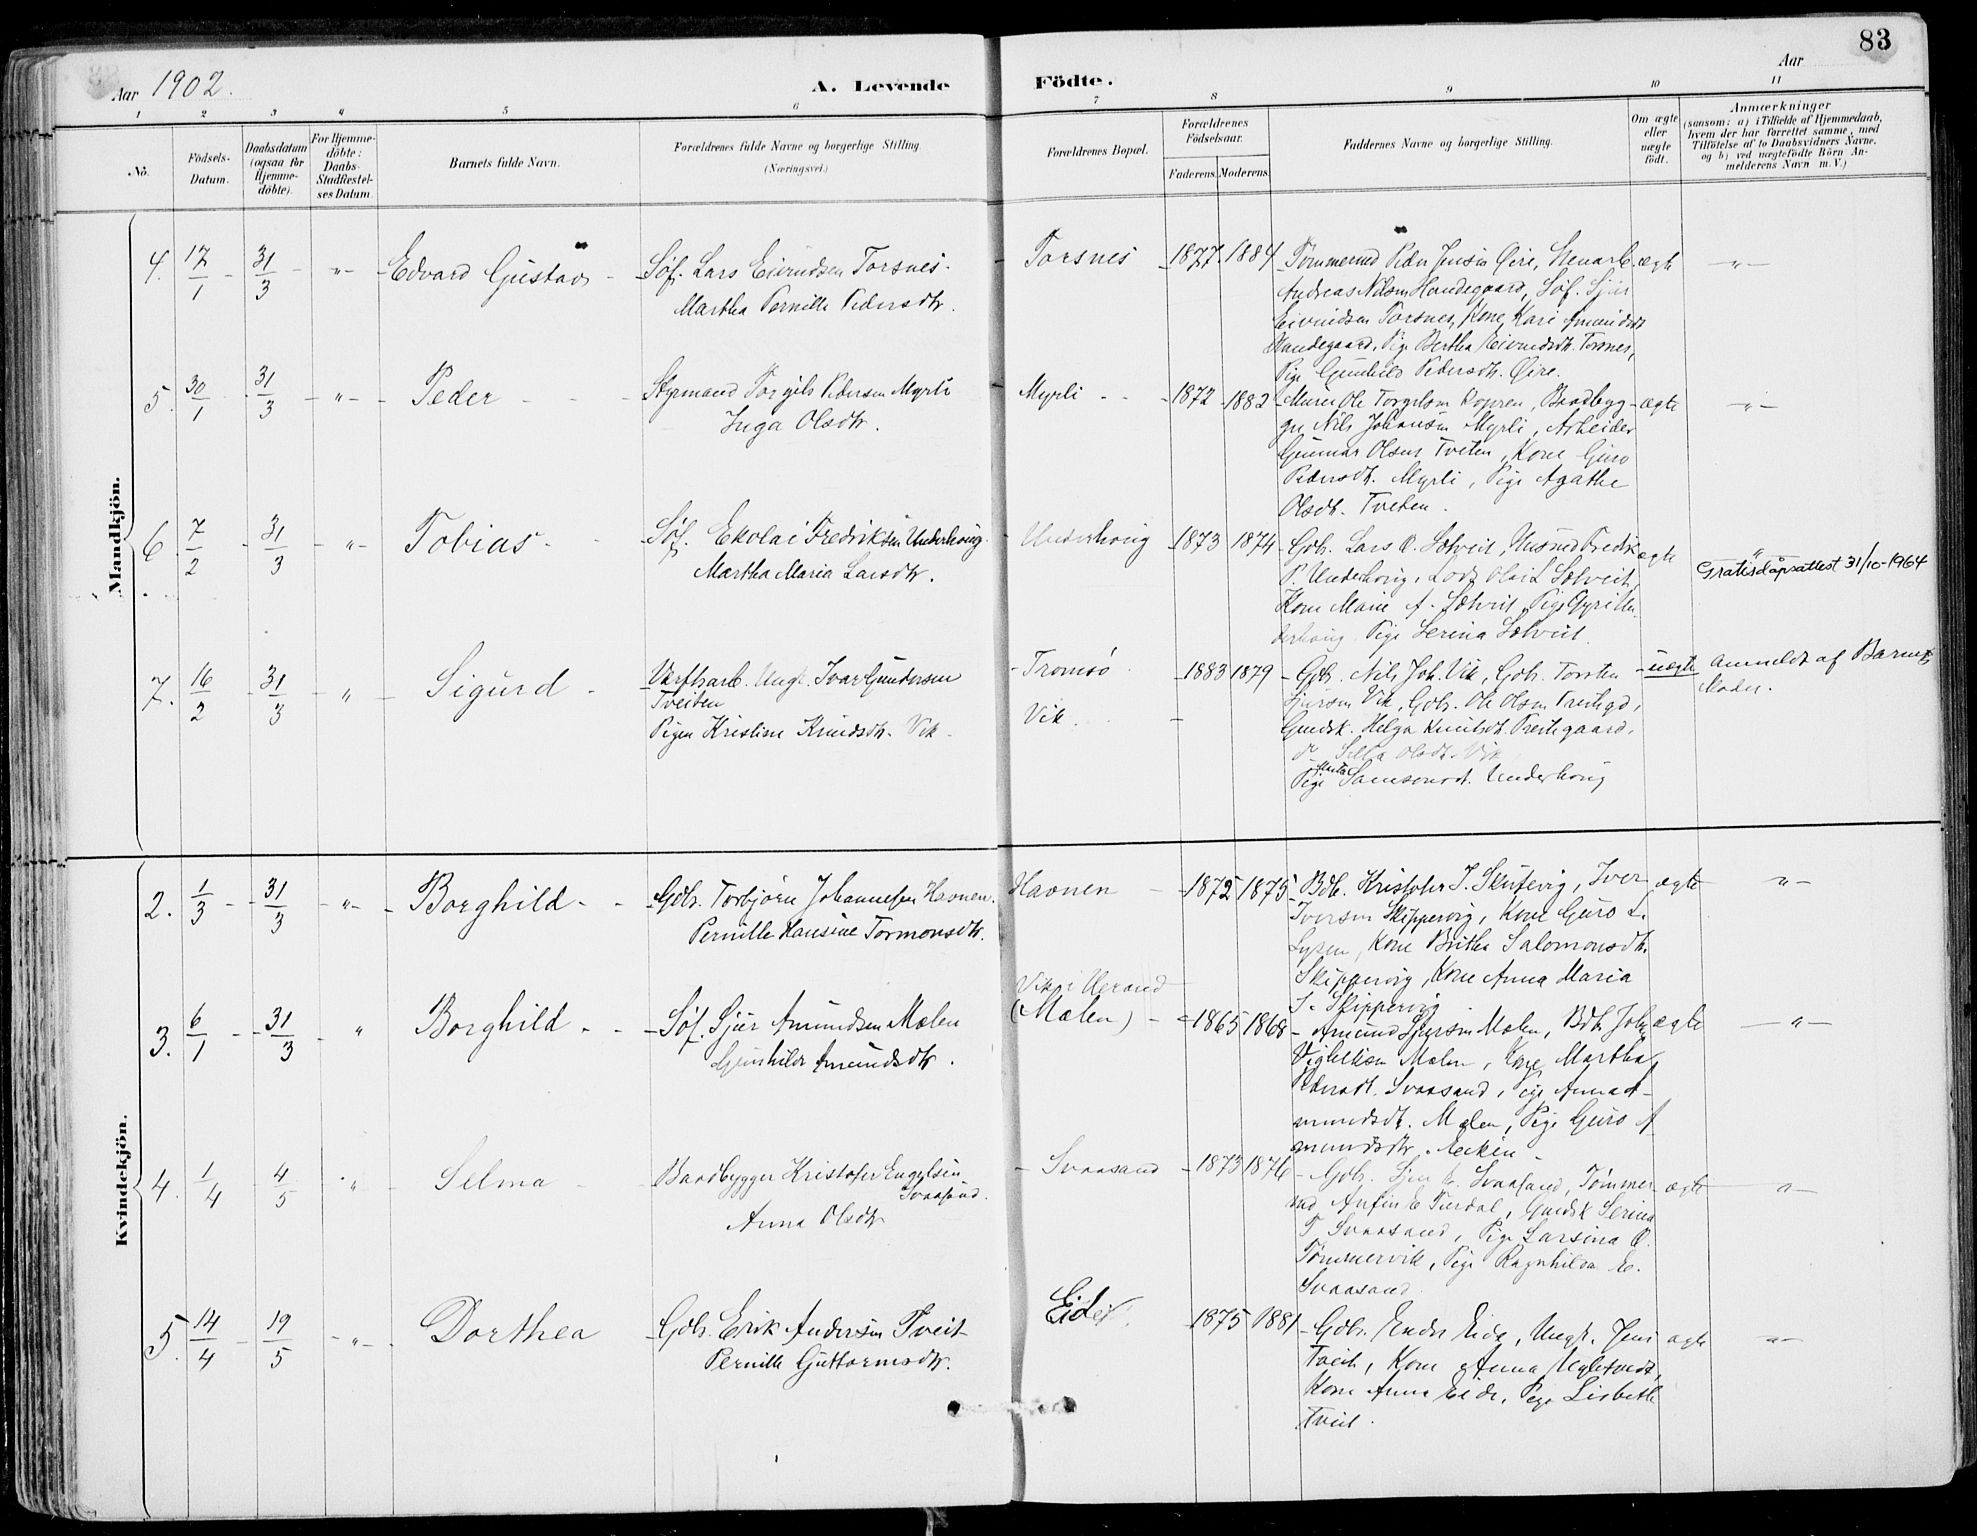 83
Aar 1902.
A. Levende Födte.
Aar
1 2 3 4 5 6 7 8 9 10 11
No.
Födsels-Datum.
Daabsdatum (ogsaa for Hjemmedöbte).
For Hjemmedöbte: Daabs-Stadfæstelses Datum
Barnets fulde Navn.
Forældrenes fulde Navne og borgerlige Stilling. (Næringsvei.)
Forældrenes Bopæl.
Forældrenes Födselsaar.
Faderens. Moderens.
Faddernes Navne og borgerlige Stilling.
Om ægte eller uægte födt.
Anmærkninger
(saasom: a) i Tilfælde af Hjemmedaab, hvem der har forrettet samme, med Tilföielse af to Daabsvidners Navne, og b) ved uægtefödte Börn Anmelderens Navn m. V.)
Mandkjön.
4. 17/1 31/3 " Edvard Gustav
Søf. Lars Eivindsen Torsnes.
Martha Pernille Pedersdtr.
Torsnes 1877 1884
Tømmermd Peder Jensen Øire, Stenarb.
Andreas Nilsen Handegaard, Søf. Sjur
Eivindsen Torsnes, Kone Kari Amundsdt
Handegaard, Pige Bertha Eivindsdt. Torsnes,
Pige Gunhild Pedersdt. Øire.
ægte "
5. 30/1 31/3 " Peder
Styrmand Torgils Pedersen Myrli
Inga Olsdtr.
Myrli 1872 1882
Murer Ole Torgilsen Kopren, Baadbyg-
ger Nils Johansen Myrli, Arbeider
Gunnar Olsen Tveten, Kone Guro
Pedersdt. Myrli, Pige Agathe
Olsdt. Tveten.
ægte "
6 7/2 31/3 " Tobias
Søf. Ekolai Fredriksen Underhoug
Martha Maria Larsdtr.
Underhoug 1873 1874
Gdb. Lars O. Solveit, Husmd Fredrik
P. Underhoug, Lods Olai L Solveit,
Kone Marie A. Solveit, Pige Gyri Un-
derhoug Pige Serina Solveit.
ægte "
Gratis dåpsattest 31/10-1964
7. 16/2 31/3 " Sigurd
Værftsarb. Ungk. Ivar Gundersen
Tveiten
Pigen Kristine Knudsdtr. Vik
Tromsø
Vik.
1883 1879
Gdb. Nils Joh. Vik, Gdb. Torsten
Sjursen Vik, Gdb. Ole Olsen Prestegd,
Gmdsk. Helga Knutsdt. Prestegaard,
Olsdt. Vik
Pige Marta Samsonsdt. Underhoug
uægte Anmeldt af Barnets
Moder.
Kvindekjön.
2. 1/3 31/3 " Borghild
Gdb. Torbjørn Johannesen Havnen.
Pernille Hansine Tormonsdtr.
Havnen 1872 1875
Bdb. Kristofer J. Skutevig, Iver
Iversen Skippervig, Kone Guro L.
Lysen, Kone Britha Salomonsdt.
Skippervig, Kone Anna Maria
I. Skippervig
ægte "
3. 6/1 31/3 " Borghild
Søf. Sjur Amundsen Mælen
Gunhild Amundsdtr.
Vik i Herand
(Mælen) 1865 1868
Amund Sjursen Mælen, Bdb. Johs
Vigleiksen Mælen, Kone Martha
Pedersdt. Svaasand, Pige Anna A-
mundsdt. Mælen, Pige Guro A-
mundsdtr.
ægte "
4. 1/4 4/5 " Selma
Baadbygger Kristofer Engelsen
Svaasand.
Anna Olsdtr
Svaasand 1873 1876
Gdb. Sjur Svaasand, Tømmer-
md Anfin E Tierdal, Gmdsk Serina
T Svaasand, Pige Larsina O.
Tømmervik, Pige Ragnhilda E.
Svaasand.
ægte "
5. 14/4 19/5 " Dorthea
Gdb. Erik Andersen Tveit
Pernille Guttormsdtr.
Eide 1875 1881
Gdb. Endre Eide, Ungk. Jens
Tveit, Kone Anna Ugletvedt,
Kone Anna Eide, Pige Lisbeth
Tveit.
ægte "